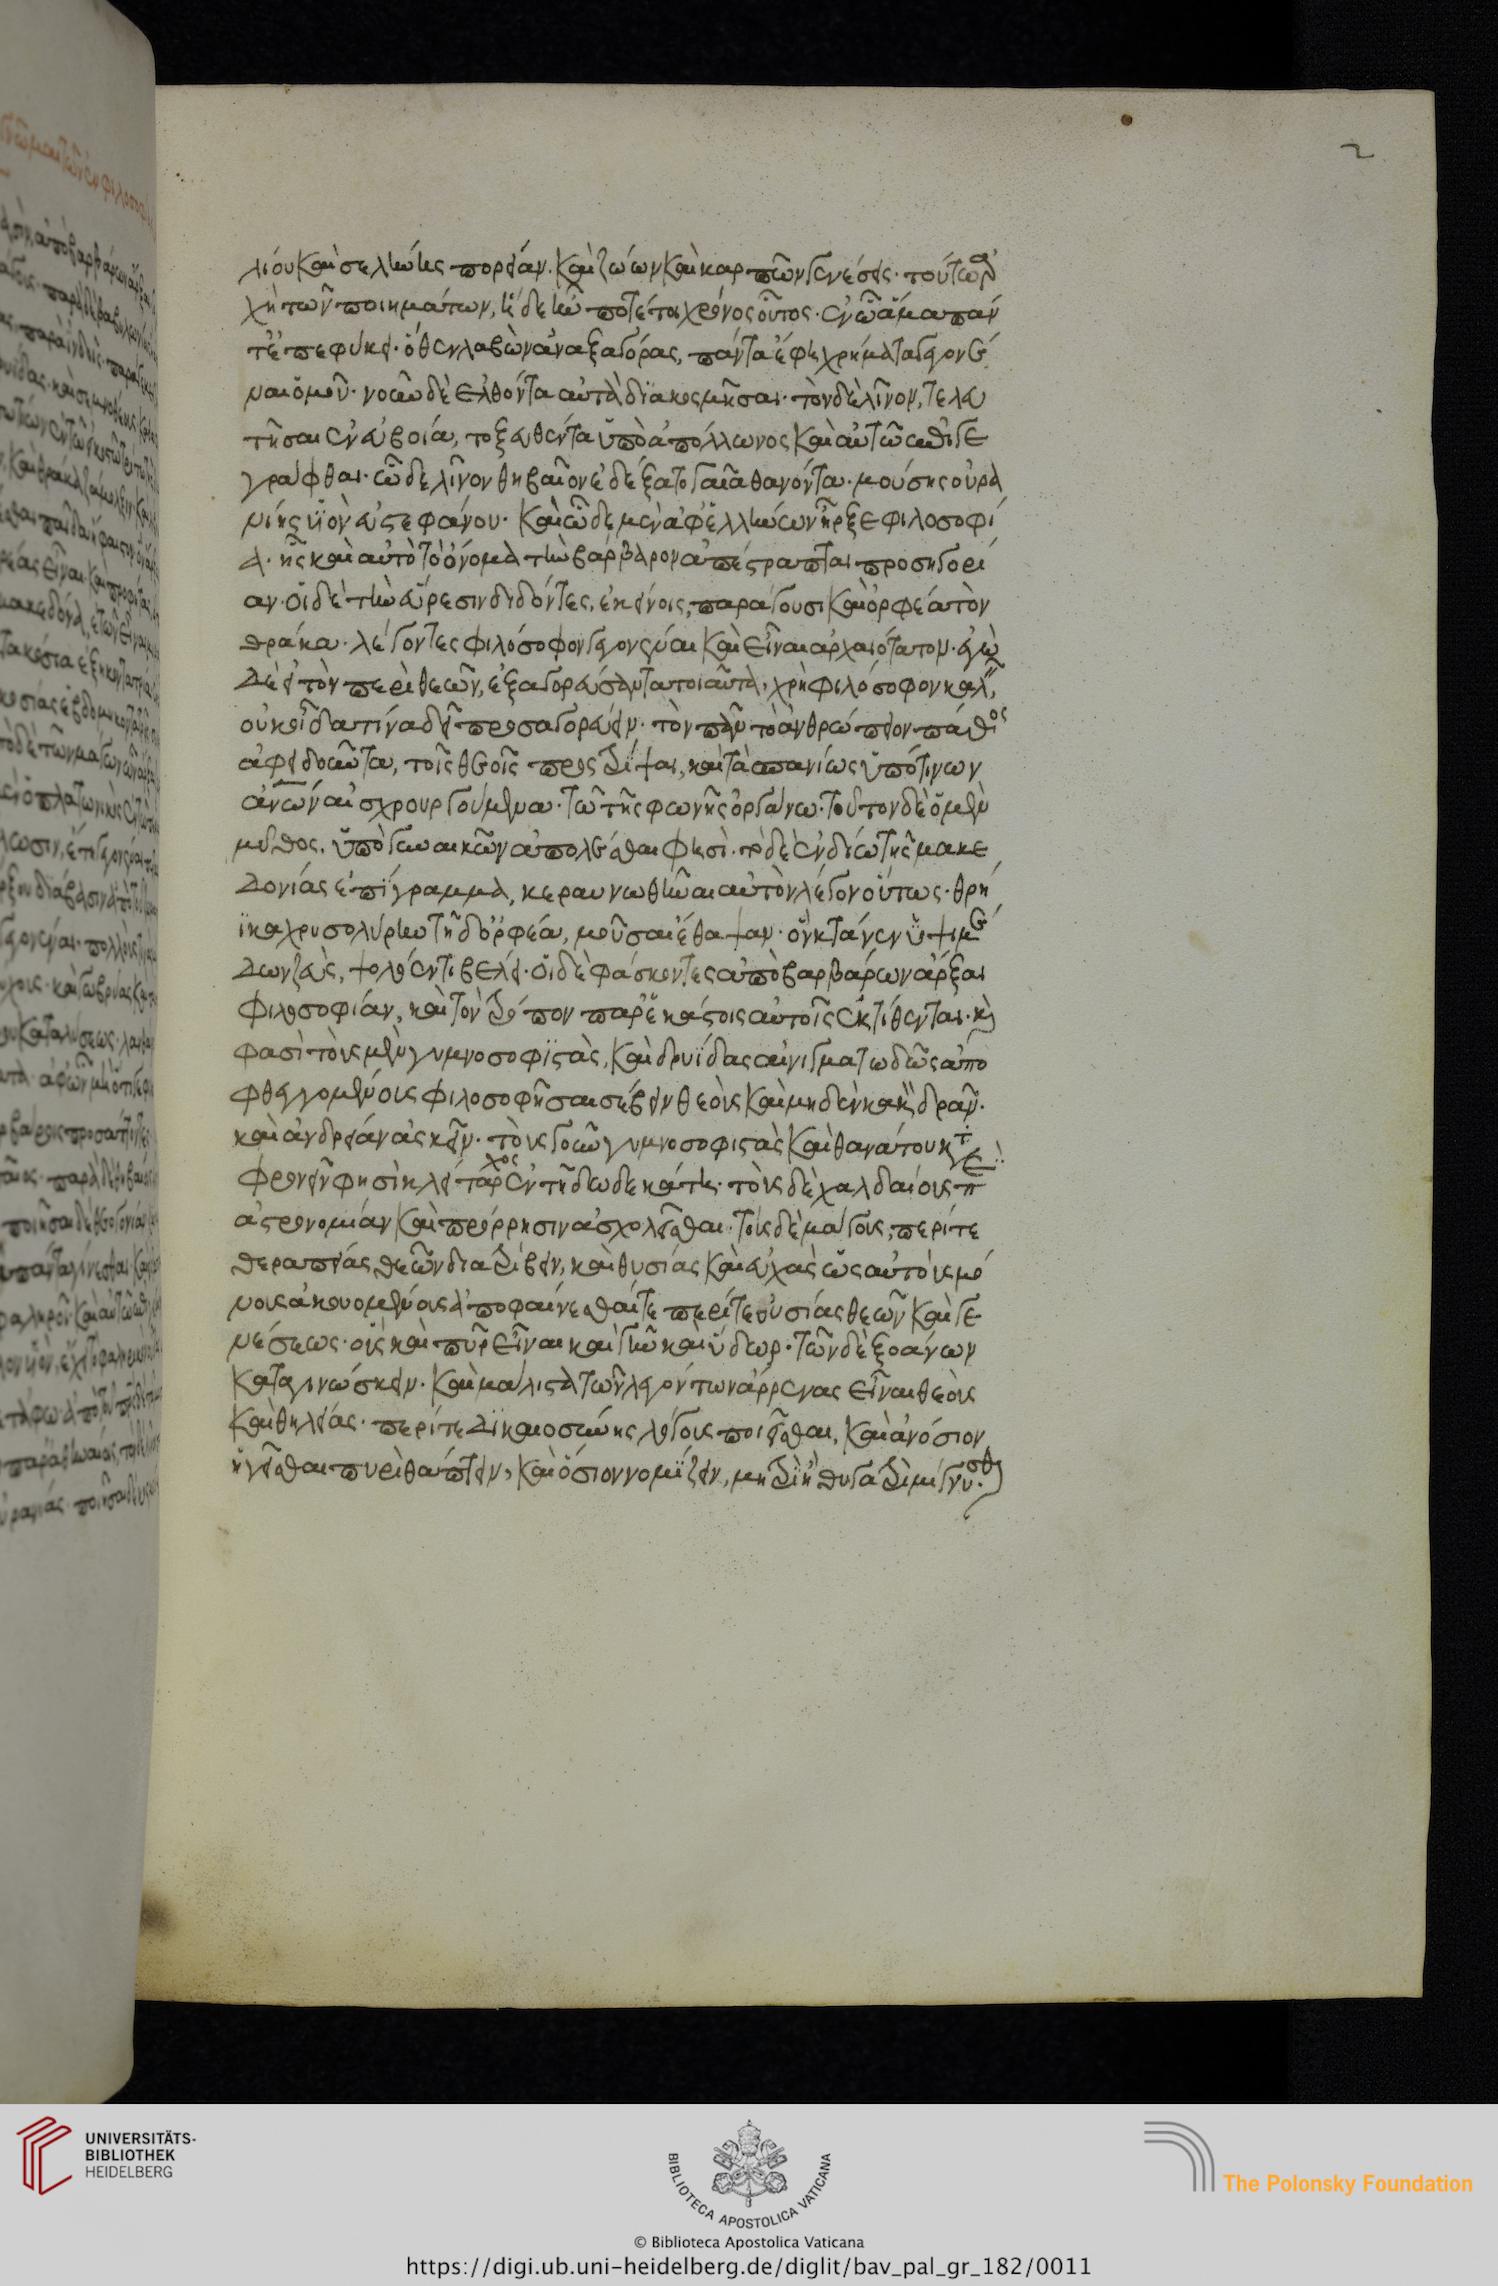 2
λίου καὶ σελήνης πορείαν. καὶ ζώων καὶ καρπῶν γενέσεις. τούτω ἀρ
χὴ τῶν ποιημάτων, ἦν δέ ποτέ τοι χρόνος οὗτος. ἐν ᾧ ἅμα πάν
τ' ἐπεφύκει. ὅθεν λαβὼν ἀναξαγόρας, πάντα ἔφη χρήματα γεγονέ
ναι ὁμοῦ. νοῦν δὲ ἐλθόντα αὐτὰ διακοσμῆσαι. τὸν δὲ λῖνον, τελευ
τῆσαι ἐν εὐβοία, τοξευθέντα ὑπὸ ἀπόλλωνος καὶ αὐτῶ ἐπιγε
γράφθαι. ὧδε λῖνον θηβαῖον ἐδέξατο γαῖα θανόντα. μούσης οὐρα
νίης υἱὸν ἐυστεφάνου. καὶ ὧδε μὲν ἀφ' ἑλλήνων ἦρξε φιλοσοφί
α. ἧς καὶ αὐτὸ τὸ ὄνομα τὴν βάρβαρον ἀπέστραπται προσηγορί
αν. οἱ δὲ τὴν εὕρεσιν διδόντες, ἐκείνοις, παράγουσι καὶ ὀρφέα τὸν
θρᾶκα. λέγοντες φιλόσοφον γεγονέναι καὶ εἶναι ἀρχαιότατον. ἐγὼ
δὲ εἰ τὸν περὶ θεῶν, ἐξαγορεύσαντα τοιαῦτα, χρὴ φιλόσοφον καλ
οὐκ οἶδα τίνα δεῖ προσαγορεύειν. τὸν πᾶν τὸ ἀνθρώπειον πάθος
ἀφειδοῦντα, τοῖς θεοῖς προστρίψαι, καὶ τὰ σπανίως ὑπό τινων
ἀνων αἰσχρουργούμενα. τῶ τῆς φωνῆς ὀργάνω. τοῦτον δὲ ὁ μὲν
μῦθος, ὑπὸ γυναικῶν ἀπολέσθαι φησί. τὸ δὲ ἐν δίω τῆς μακε
δονίας ἐπίγραμμα, κεραυνωθῆναι αὐτὸν λέγον οὕτως. θρή
ϊκα χρυσολύρην τῆδ' ὀρφέα, μοῦσαι ἔθαψαν. ὃν κτάνεν ὑψιμέ
δων ζεὺς, ψολόεντι βέλει. οἱ δὲ φάσκοντες ἀπὸ βαρβάρων ἄρξαι
φιλοσοφίαν, καὶ τὸν τρόπον παρ' ἑκάστοις αὐτοῖς ἐκτίθενται. καὶ
φασὶ τοὺς μὲν γυμνοσοφιστὰς, καὶ δρυΐδας αἰνιγματωδῶς ἀπο
φθεγγομένους φιλοσοφῆσαι σέβειν θεοὺς καὶ μηδὲν κακὸν δρᾶν.
καὶ ἀνδρείαν ἀσκεῖν. τοὺς γοῦν γυμνοσοφιστὰς καὶ θανάτου κατ
φρονεῖν φησὶ κλείταρχος ἐν τῆ δωδεκάτη. τοὺς δὲ χαλδαίους π
ἀστρονομίαν καὶ πρόρρησιν ἀσχολεῖσθαι. τοὺς δὲ μάγους, περί τε
θεραπείας θεῶν διατρίβειν, καὶ θυσίας καὶ εὐχὰς ὡς αὐτοὺς μό
νους ἀκουομένους ἀποφαίνεσθαί τε περί τε οὐσίας θεῶν καὶ γε
νέσεως. οὓς καὶ πῦρ εἶναι καὶ γῆν καὶ ὕδωρ. τῶν δὲ ξοάνων
καταγινώσκειν. καὶ μάλιστα τῶν λεγόντων ἄρρενας εἶναι θεοὺς
καὶ θηλείας. περί τε δικαιοσύνης λόγους ποιεῖσθαι, καὶ ἀνόσιον
ἡγεῖσθαι πυρὶ θάπτειν, καὶ ὅσιον νομίζειν, μητρὶ ἢ θυγατρὶ μίγνυσθαι
UNIVERSITÄTS-
BIBLIOTHEK
HEIDELBERG
BIBLIOTECA APOSTOLICA VATICANA
The Polonsky Foundation
© Biblioteca Apostolica Vaticana
https://digi.ub.uni-heidelberg.de/diglit/bav_pal_gr_182/0011